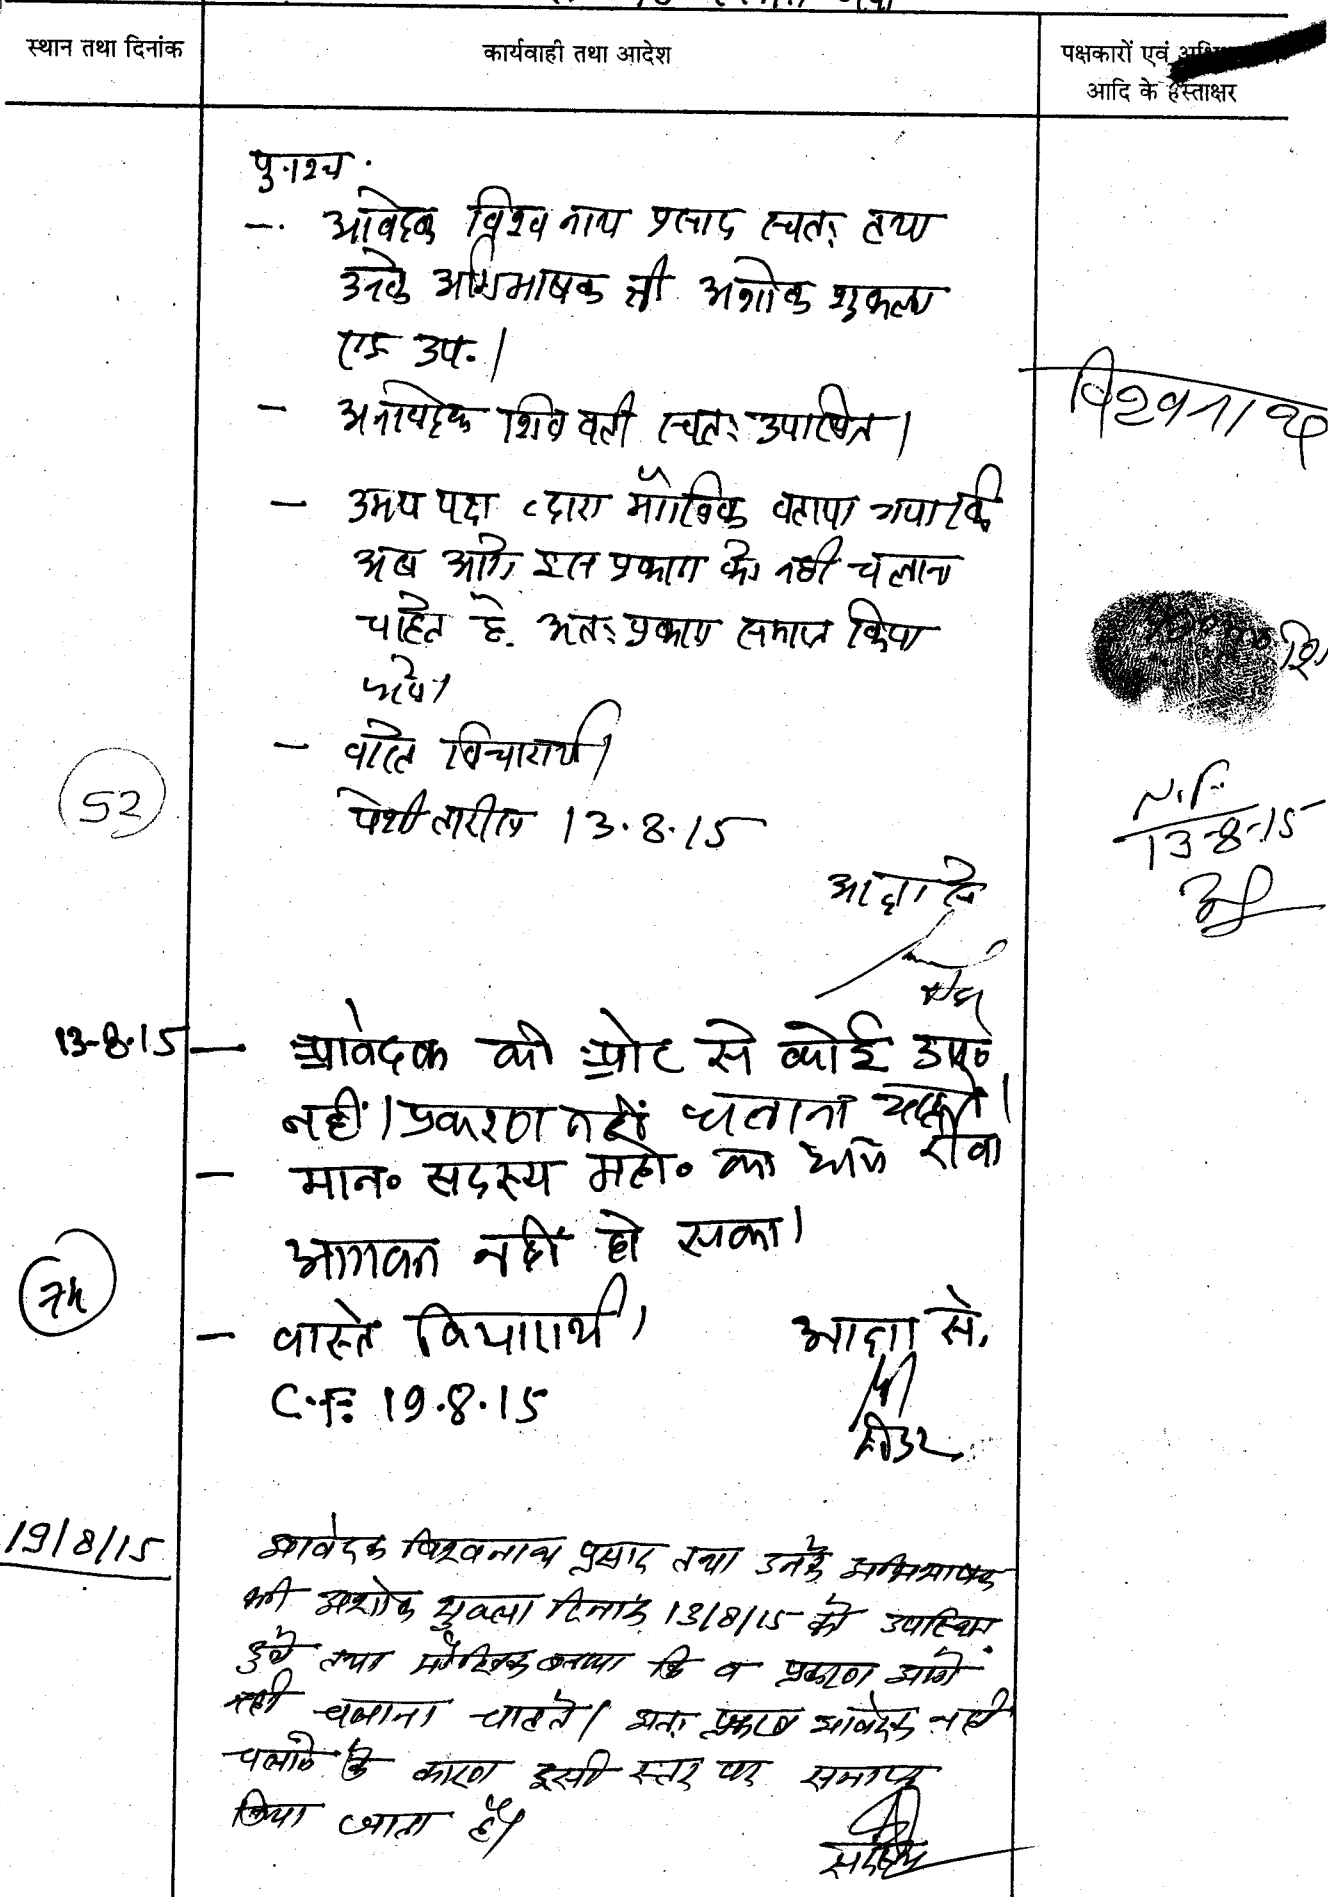 स्थान तथा दिनांक
कार्यवाही तथा आदेश
पक्षकारों एवं
आदि के हस्ताक्षर
पुनश्च.
- आवेदक विश्वनाथ प्रसाद स्वतः तथा
उनके अभिभाषक श्री अशोक शुक्ला
एड. उप.।
- अनावेदक शिववती स्वतः उपस्थित।
विश्वनाथ
- उभय पक्ष द्वारा मौखिक बताया गया कि
अब आगे इस प्रकरण को नहीं चलाना
चाहते है. अतः प्रकरण समाप्त किया
जावे।
- वास्ते विचारार्थ।
52
पेशी तारीख 13.8.15
N.F.
13-8-15
आज्ञा से
रीडर
13-8-15
- आवेदक की ओर से कोई उप०
नहीं। प्रकरण नहीं चलाना चाहते।
- मान० सदस्य महो० का रीवा
आगमन नहीं हो सका।
- वास्ते विचारार्थ।
आज्ञा से.
C.F. 19.8.15
रीडर
19/8/15
आवेदक विश्वनाथ प्रसाद तथा उनके अभिभाषक
श्री अशोक शुक्ला दिनांक 13/8/15 को उपस्थित
हुये तथा मौखिक बताया कि वे प्रकरण आगे
नहीं चलाना चाहते। अतः प्रकरण आवेदक नही
चलाने के कारण इसी स्तर पर समाप्त
किया जाता है।
सदस्य